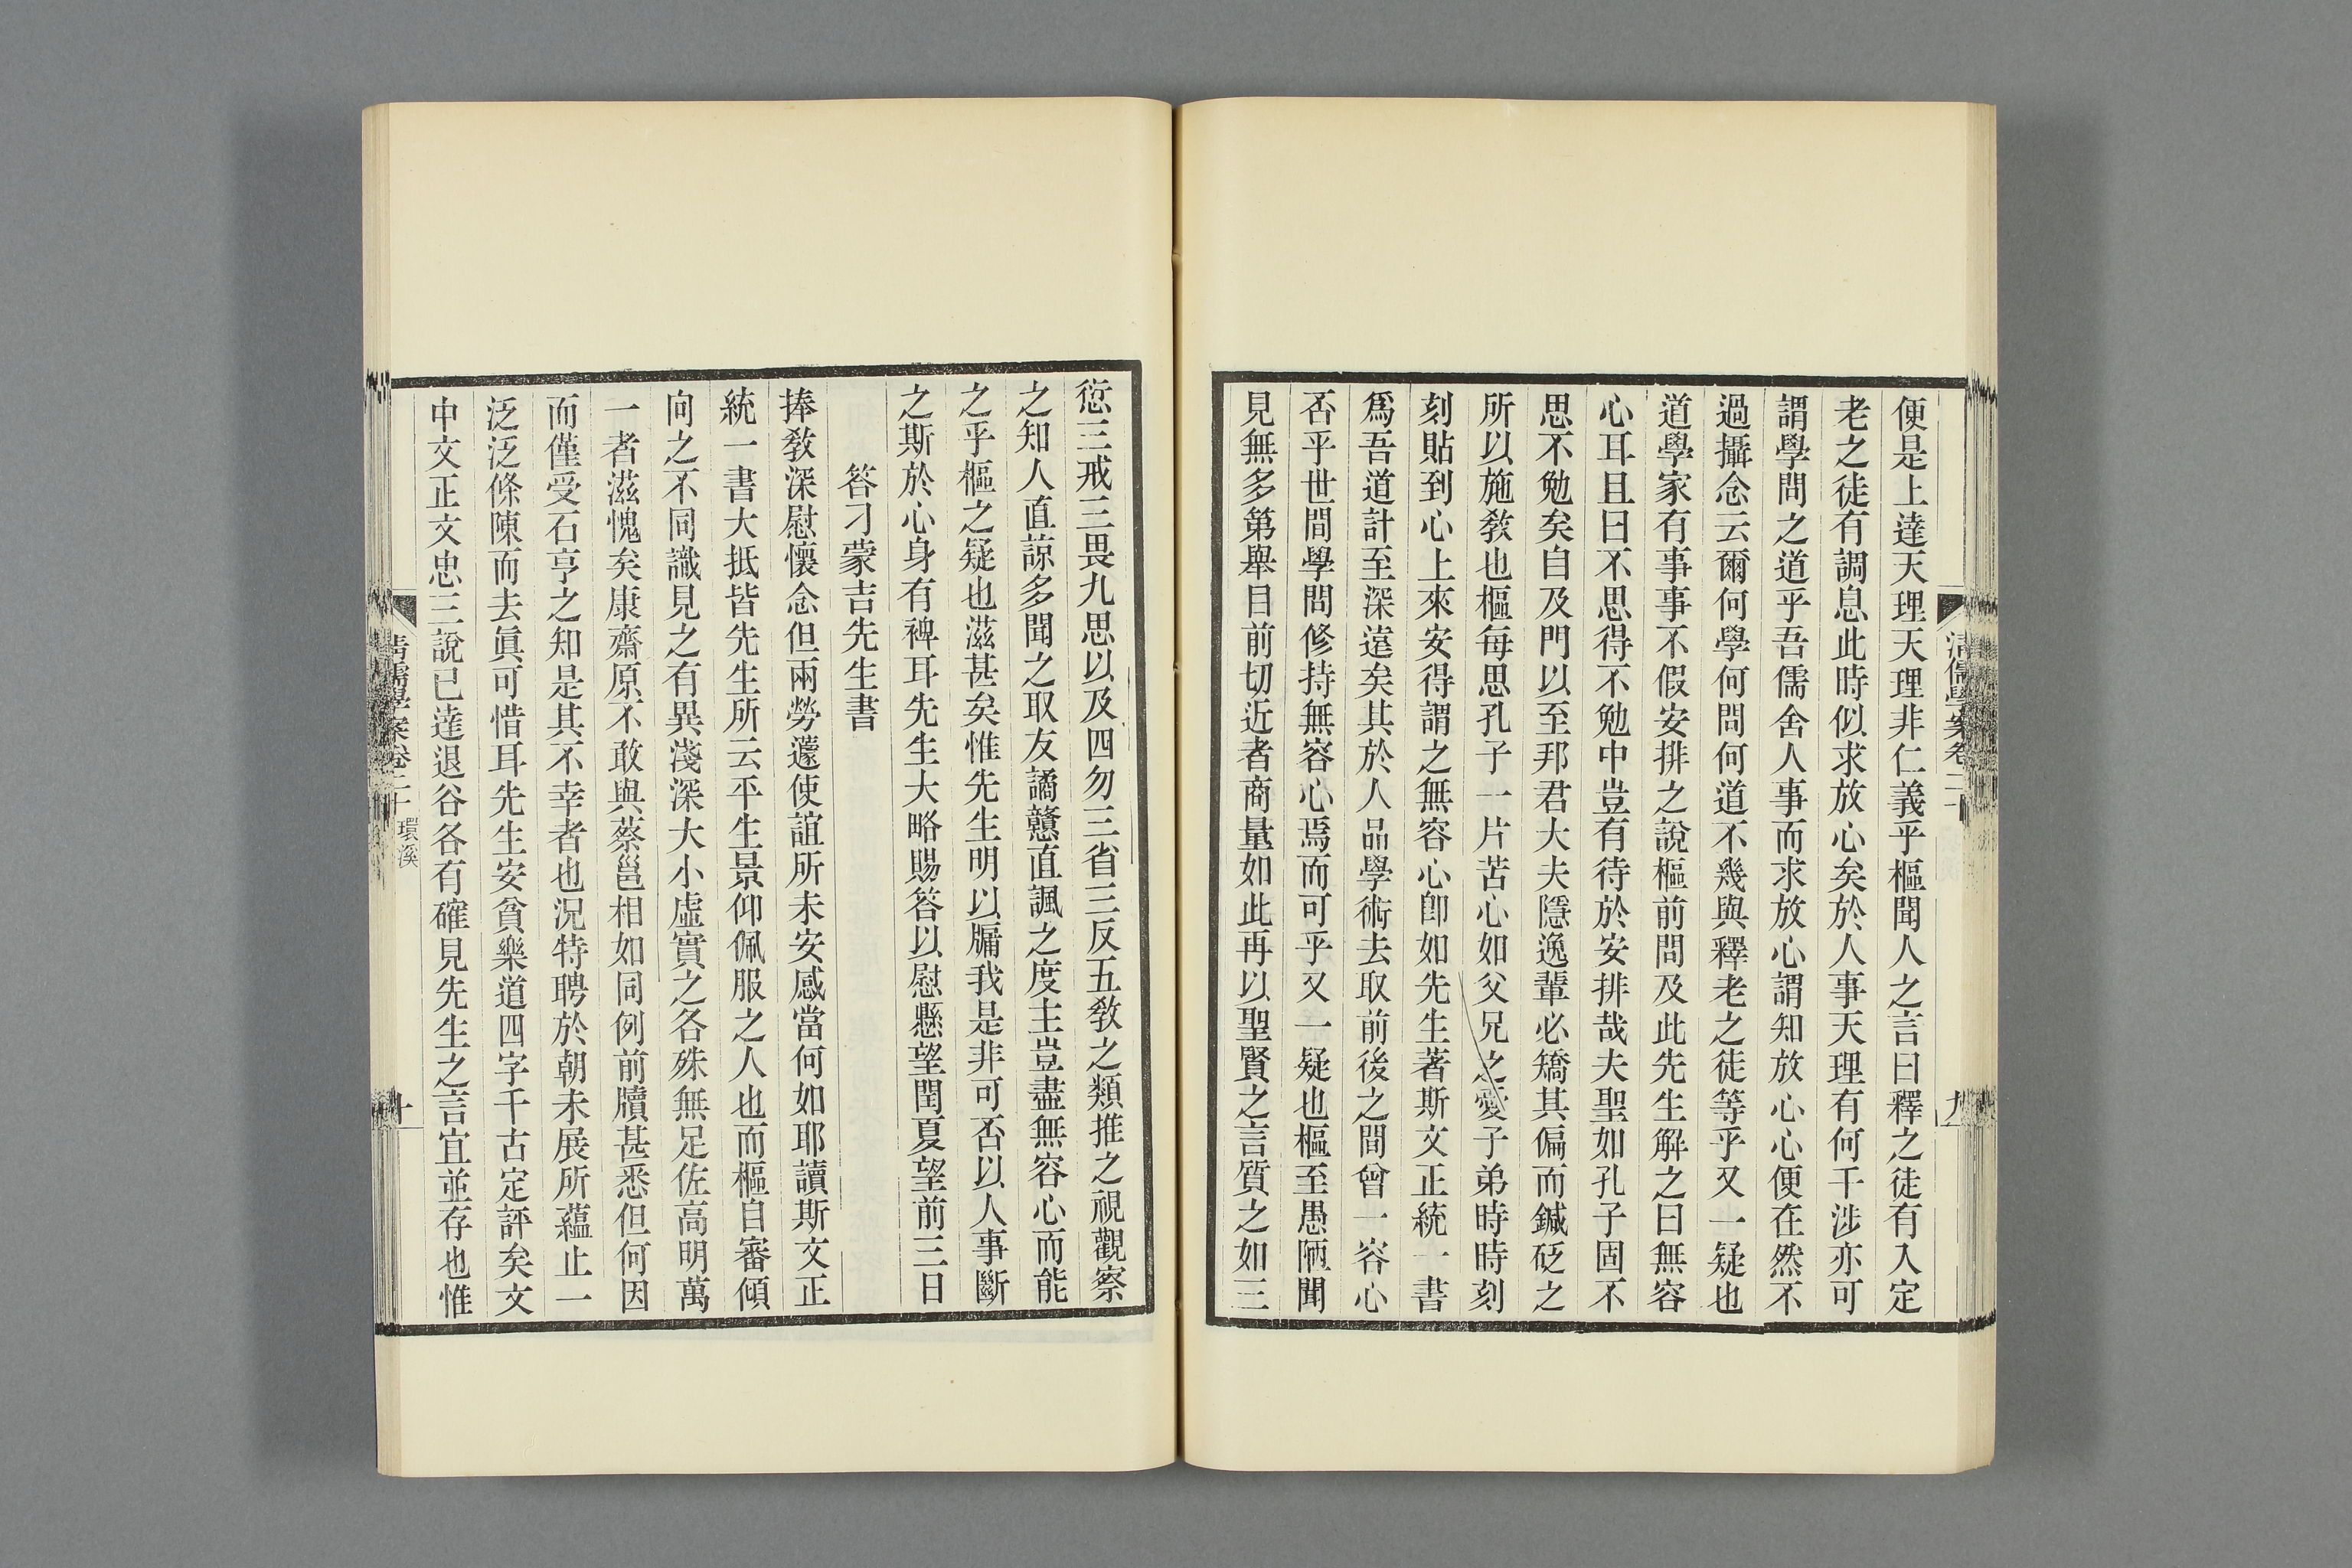 清儒學案卷二十
九
便是上達天理天理非仁義乎樞聞人之言曰釋之徒有入定
老之徒有調息此時似求放心矣於人事天理有何干涉亦可
謂學問之道乎吾儒舍人事而求放心謂知放心心便在然不
過攝念云爾何學何問何道不幾與釋老之徒等乎又一疑也
道學家有事事不假安排之說樞前問及此先生解之曰無容
心耳且曰不思得不勉中豈有待於安排哉夫聖如孔子固不
思不勉矣自及門以至邦君大夫隱逸輩必矯其偏而鍼砭之
所以施敎也樞每思孔子一片苦心如父兄之愛子弟時時刻
刻貼到心上來安得謂之無容心卽如先生著斯文正統一書
爲吾道計至深遠矣其於人品學術去取前後之間曾一容心
否乎世間學問修持無容心焉而可乎又一疑也樞至愚陋聞
見無多第舉目前切近者商量如此再以聖賢之言質之如三
愆三戒三畏九思以及四勿三省三反五敎之類推之視觀察
之知人直諒多聞之取友譎戆直諷之度主豈盡無容心而能
之乎樞之疑也滋甚矣惟先生明以牖我是非可否以人事斷
之斯於心身有裨耳先生大略賜答以慰懸望閏夏望前三日
答刁蒙吉先生書
捧敎深慰懷念但兩勞蘧使誼所未安感當何如耶讀斯文正
統一書大抵皆先生所云平生景仰佩服之人也而樞自審傾
向之不同識見之有異淺深大小虛實之各殊無足佐高明萬
一者滋愧矣康齋原不敢與蔡邕相如同例前牘甚悉但何因
而僅受石亨之知是其不幸者也況特聘於朝未展所蘊止一
泛泛條陳而去眞可惜耳先生安貧樂道四字千古定評矣文
中文正文忠三說已達退谷各有確見先生之言宜並存也惟
清儒學案卷二十 環溪
十